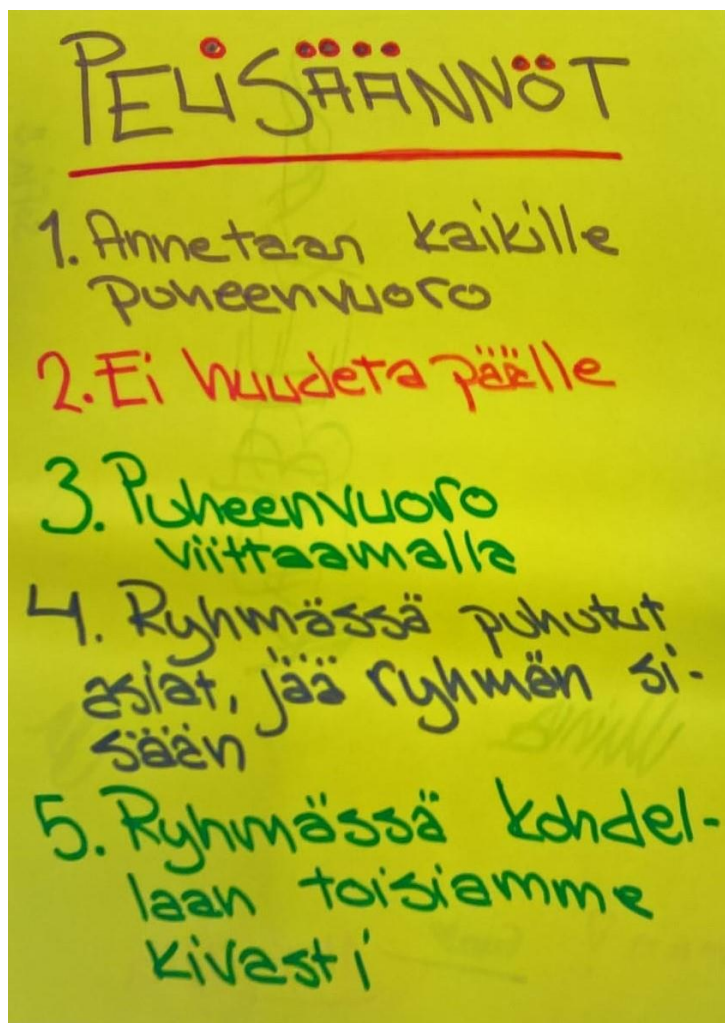 PELISÄÄNNÖT
1. Annetaan kaikille
puheenvuoro
2. Ei huudeta päälle
3. Puheenvuoro
viittaamalla
4. Ryhmässä puhutut
asiat, jää ryhmän si-
sään
5. Ryhmässä kohdel-
laan toisiamme
kivasti